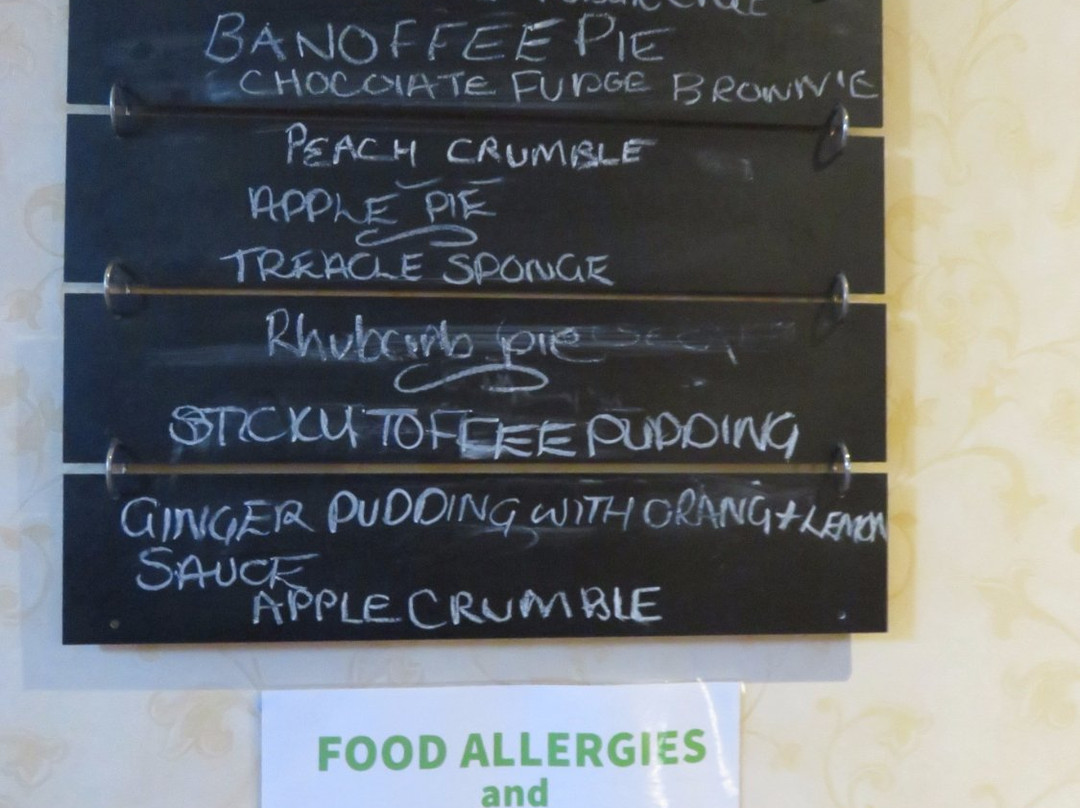 BANOFFEE PIE
CHOCOLATE FUDGE BROWNIE
PEACH CRUMBLE
APPLE PIE
TREACLE SPONGE
Rhubarb pie
STICKY TOFFEE PUDDING
GINGER PUDDING WITH ORANG + LEMON
SAUCE
APPLE CRUMBLE
FOOD ALLERGIES
and